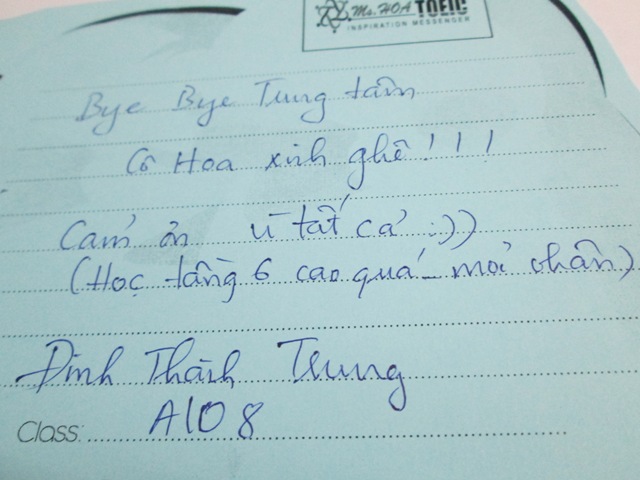 Ms. HOA TOEIC
INSPIRATION MESSENGER
Bye Bye Trung tâm
Cô Hoa xinh ghê!!!
Cảm ơn vì tất cả :))
(Học tầng 6 cao quá - mỏi chân)
Đinh Thành Trung
Class: A108